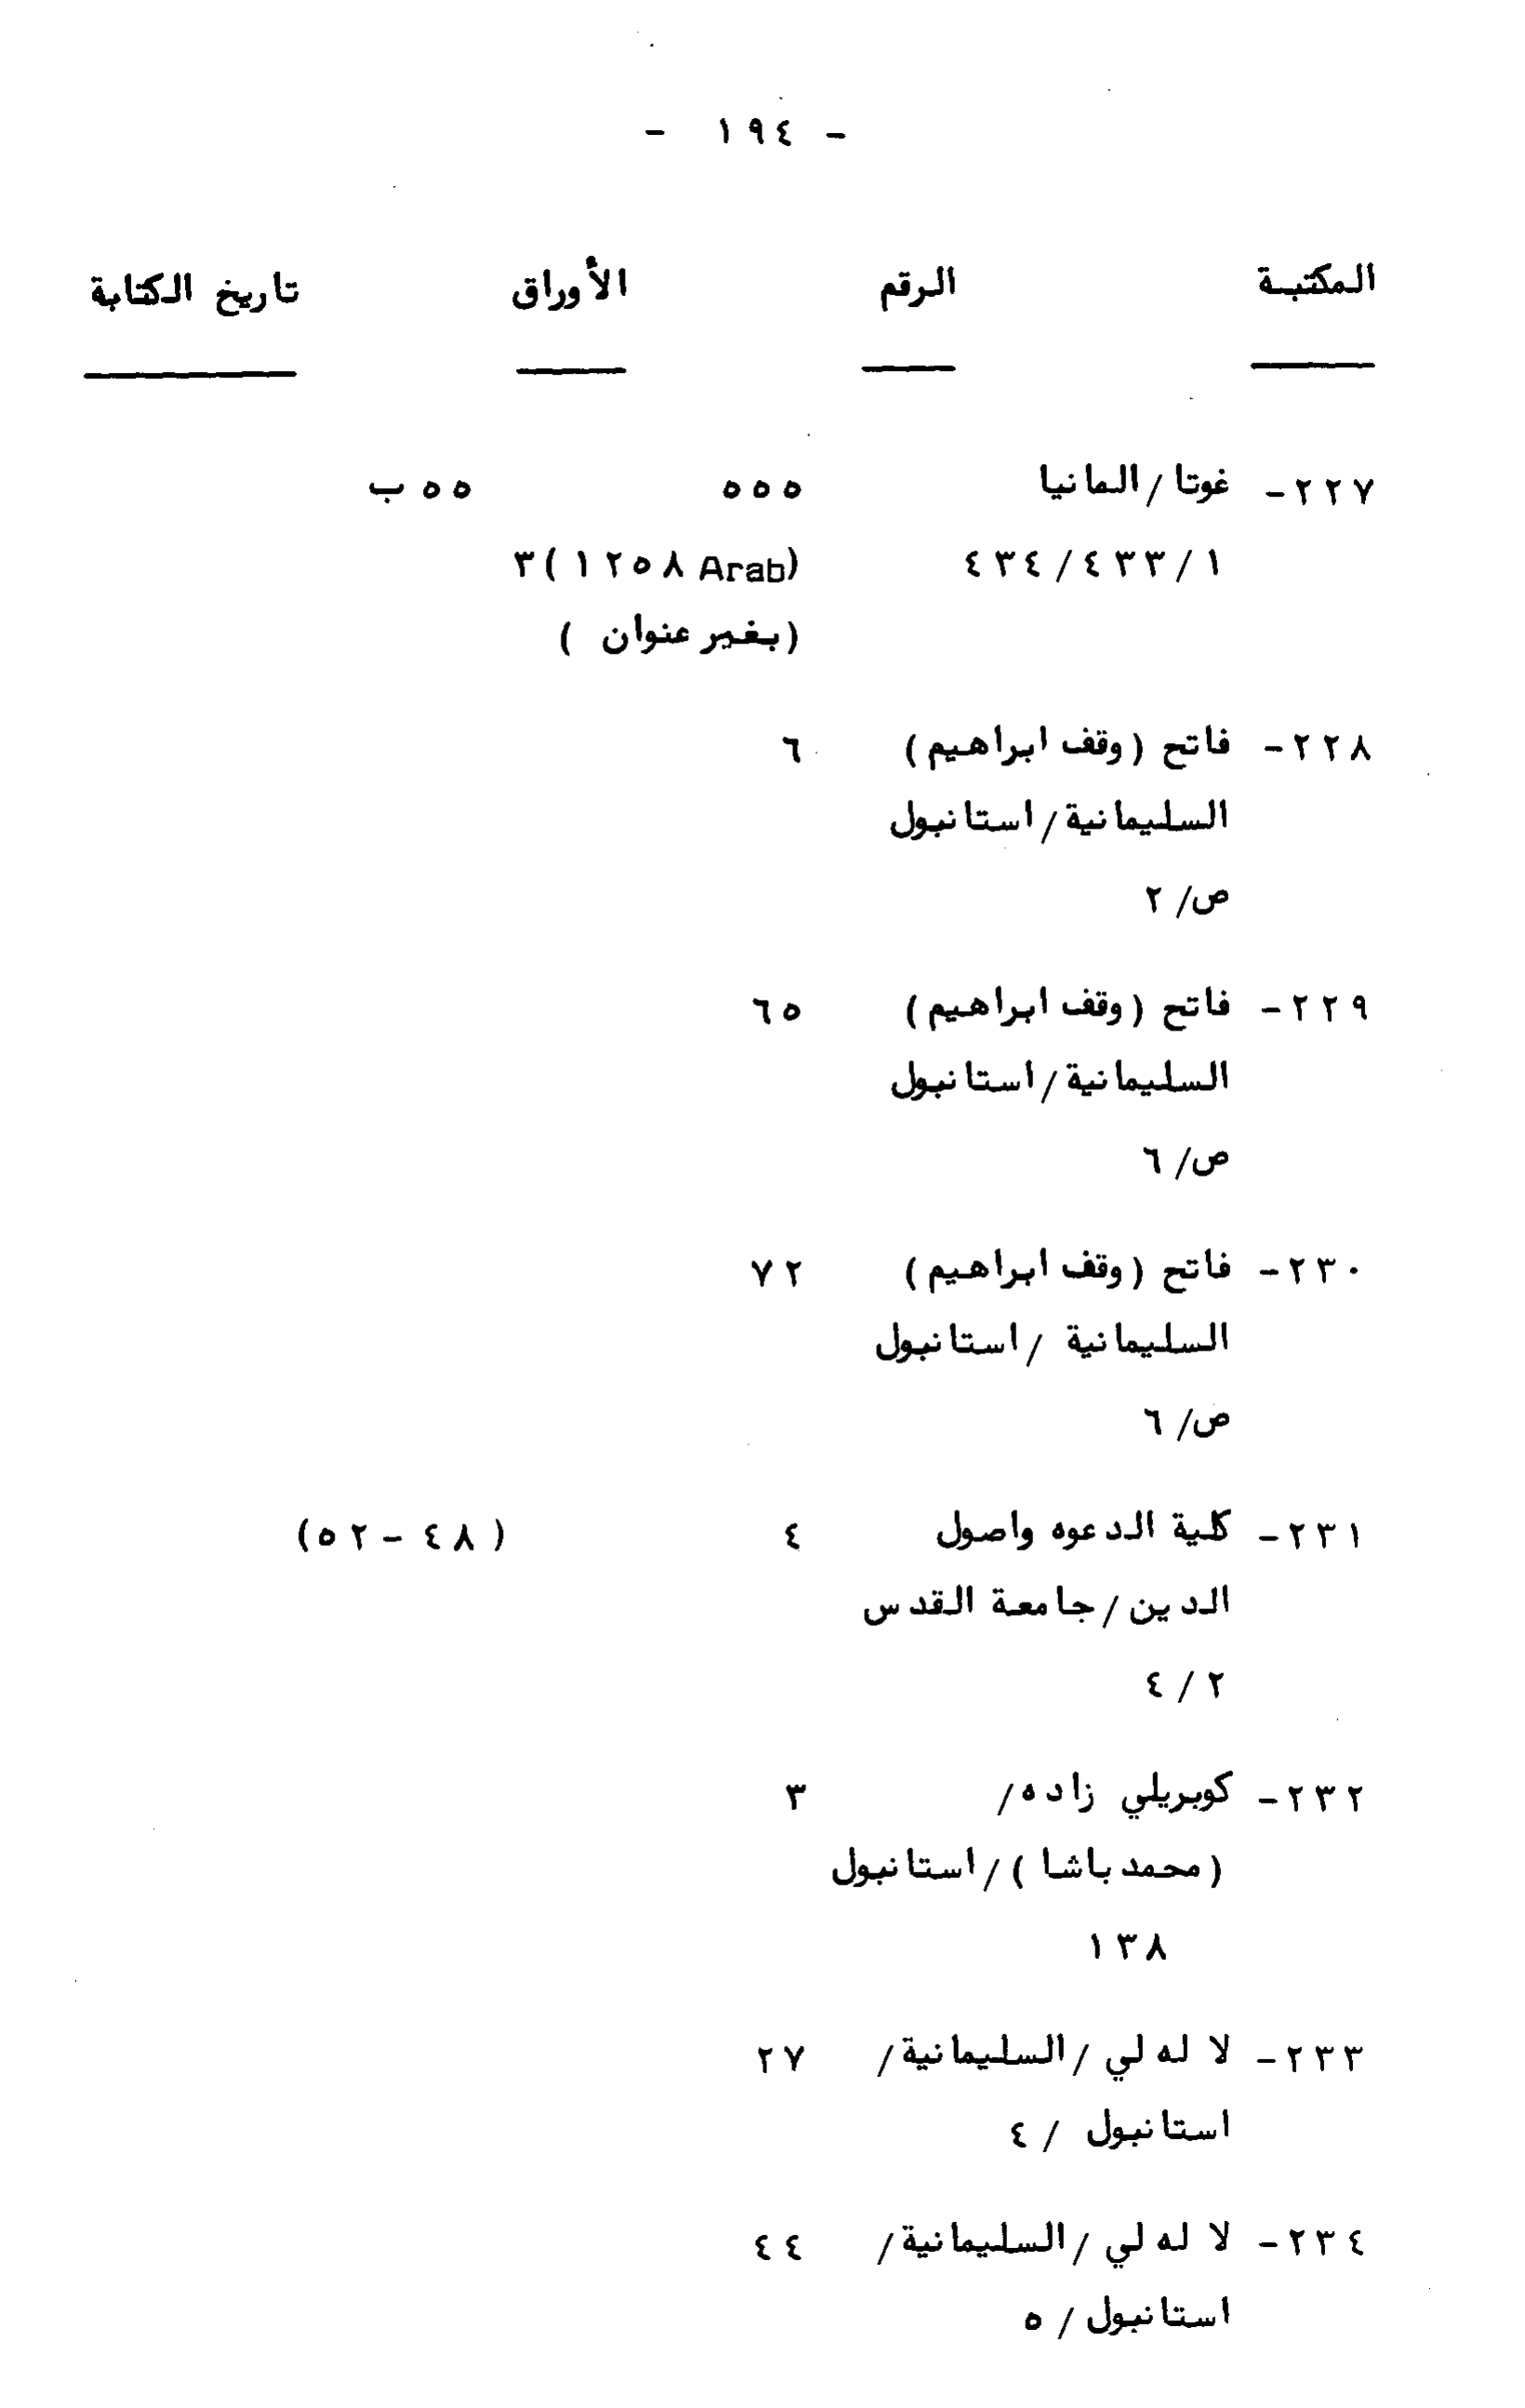 - ١٩٤ -
المكتبة الرقم الأوراق تاريخ الكتابة
٢٢٧- غوتا/المانيا ٥٥٥ ٥٥ب
٤٣٤/٤٣٣/١ (Arab ١٢٥٨)٣
(بغير عنوان )
٢٢٨- فاتح (وقف ابراهيم) ٦
السليمانية/استانبول
ص/٢
٢٢٩- فاتح (وقف ابراهيم) ٦٥
السليمانية/استانبول
ص/٦
٢٣٠- فاتح (وقف ابراهيم) ٧٢
السليمانية /استانبول
ص/٦
٢٣١- كلية الدعوه واصول ٤ (٥٢-٤٨)
الدين/جامعة القدس
٤/٢
٢٣٢- كوبريلي زاده/ ٣
(محمد باشا )/استانبول
١٣٨
٢٣٣- لا له لي /السليمانية/ ٢٧
استانبول /٤
٢٣٤- لا له لي /السليمانية/ ٤٤
استانبول /٥